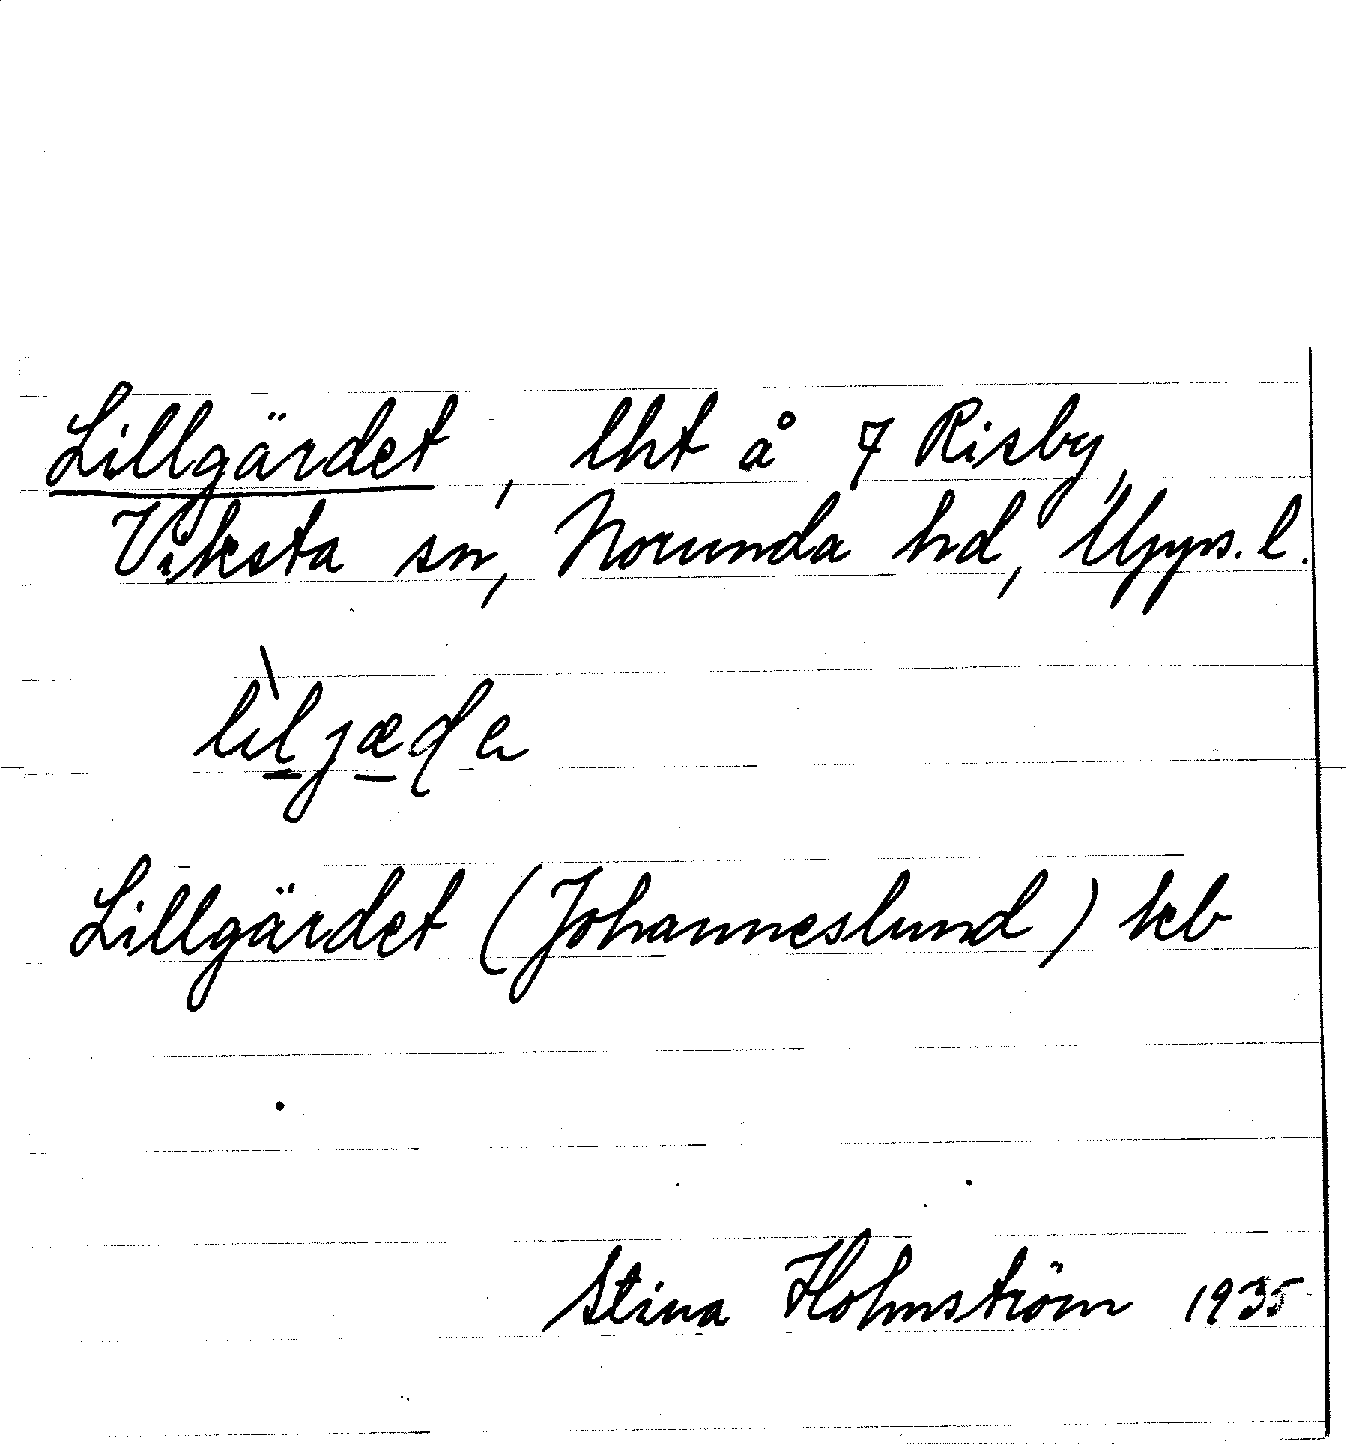 Lillgärdet, lht å 7 Risby,
Viksta sn, Norunda hd, Upps. l.
lìljæde
Lillgärdet (Johanneslund) kb
Stina Holmström 1935